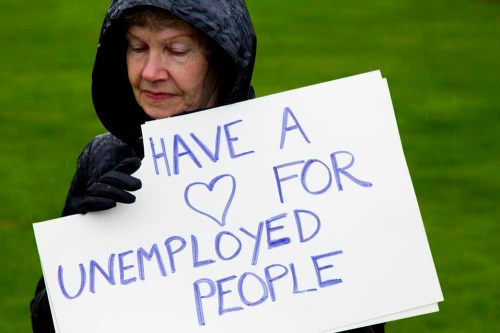 HAVE A
♡ FOR
UNEMPLOYED
PEOPLE